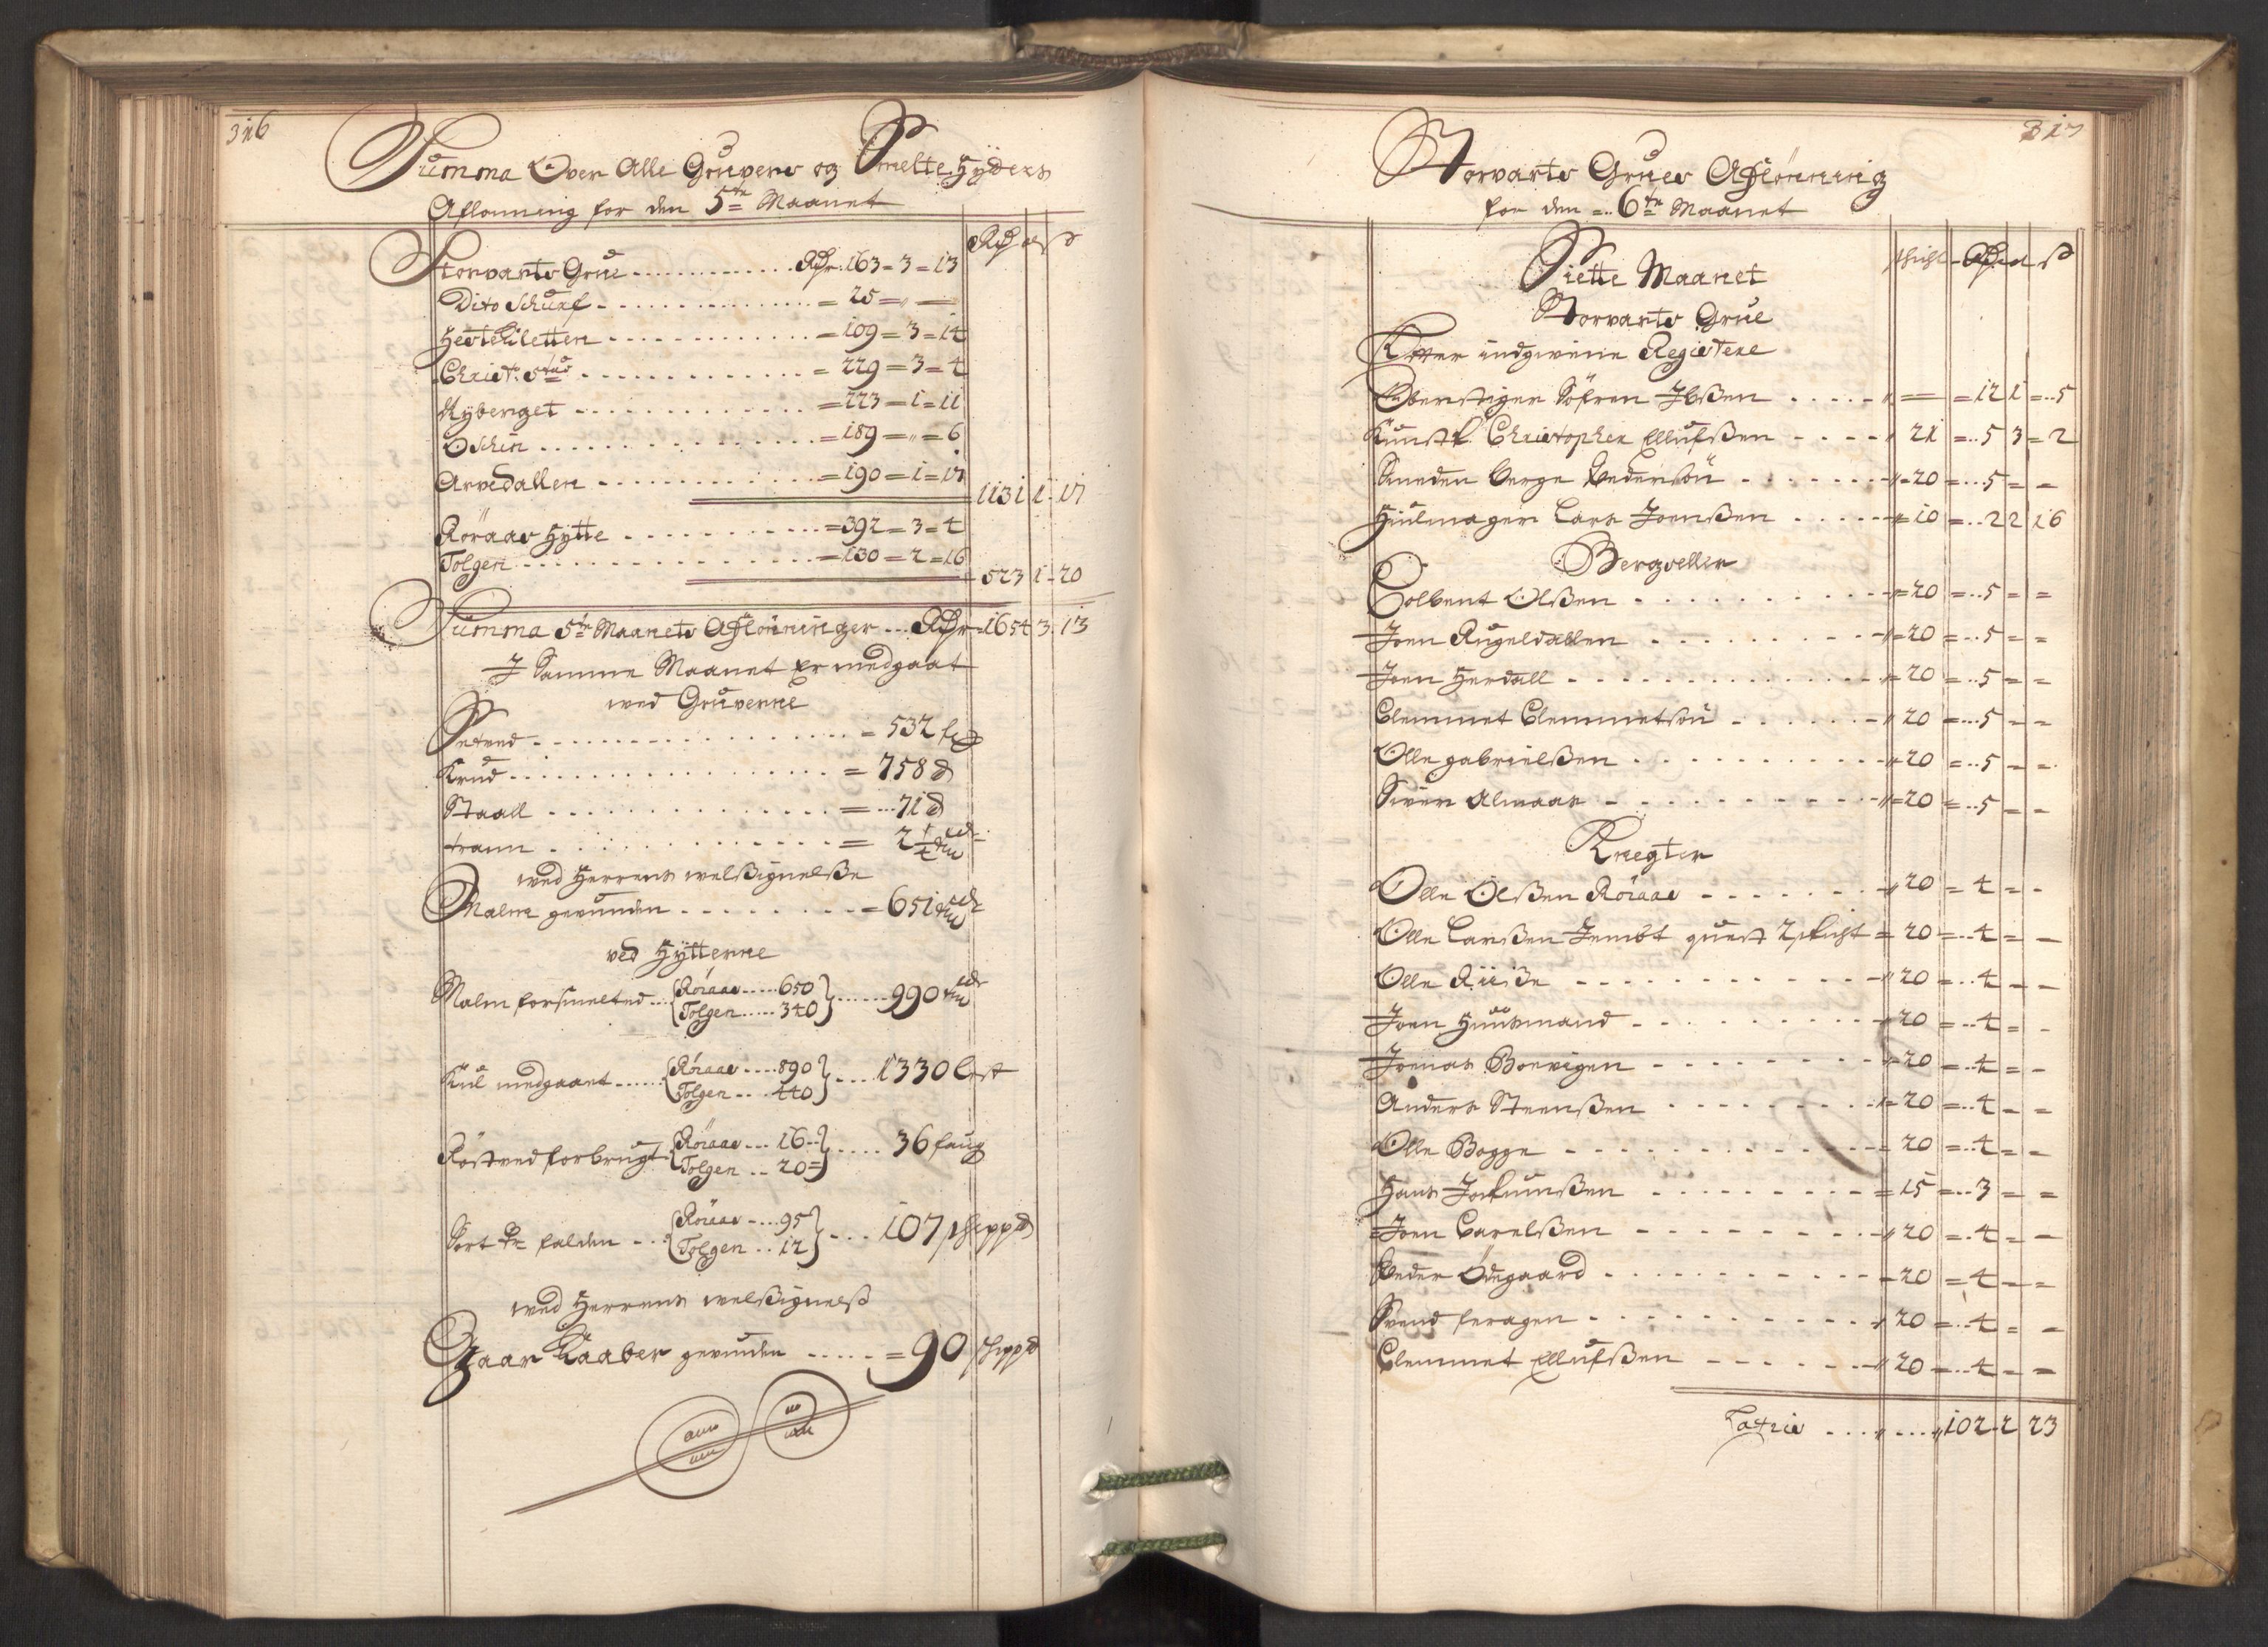 316
Summa Over Alle Gruvens og Smelte Hÿders
Aflonning for den 5te Maanet
Rdr ort ß
Storvarts Grue ............ Rdr: 163 = 3 = 13
Dito Schurf - ............ = 25 = " —
Hestekletten ............ = 109 = 3 = 14
Christ: 5tus ............ = 229 = 3 = 4
Nÿberget ............ = 223 = 1 = 11
Oschen ............ = 189 = " = 6
Arvedallen ............ = 190 = 1 = 17
1131 1 - 17
Röraas Hÿtte ............ = 392 = 3 = 4
Tolgen ............ = 130 = 2 = 16
523 1 - 20
Summa 5te Maanets Aflönninger ... Rdr = 1654 3 . 13
J Samme Maanet Er medgaat
wed Gruverne
Setved ............ = 532 fg
Krud ............ = 758 ℔
Staall ............ = ... 71 ℔
trann ............ = 2 1/4 tdr
wed Herrens welßignelße
Malm gevunden ............ = 651 tdr
ved Hÿtterne
Malm forsmelted ... Röraas ..... 650
Tolgen ..... 340 ...... 990 tdr
Kul medgaaet ...... Röraas .... 890
Tolgen .. .. 440 .... 1330 Lest
Röstved forbrugt Röraas ... 16 --
Tolgen .. 20 = .... 36 faug
Sort Kr falden ... Röraas .... 95
Tolgen .. 12 ... 107 schipp℔
wed Herrens welßignelß
Gaar Kaaber gevunden ..... = 90 schipp℔
317
Storvarts Grues Aflönning
for den = .. 6te Maanet
Siette Maanet
Storvarts Grue
schicht Rdr ort ß
Efter indgivene Registere
Oberstiger Söfren Ibßen ..... " = = 12 1 = .. 5
Kunstk. Christopher Ellufßen - - - - " 21 = .. 5 3 = 2
Smeden Berge Pedersön ....... " = 20 = ... 5 = =
Hiulmager Lars Joenßen ..... = 10 = .. 2 2 16
Bergveller
Colbent Olßen .......... " = 20 = .. 5 = =
Joen Rugeldallen ......... " = 20 = .. 5 = =
Joen Herdall ............. " = 20 = .. 5 = =
Clemmet Clemmetsön ....... " 20 = ... 5 = =
Olle gabrielßen ........... " 20 = .. 5 = =
Siver Almaas ........... " = 20 = .. 5 = =
Knegter
Olle Olßen Röraas ....... " 20 = 4 = =
Olle Larßen Jembt quest 2 schicht = 20 = .. 4 = =
Olle Riiße ............ " 20 = .. 4 = =
Joen Huusmand .......... = 20 = ... 4 = =
Joenas Borvigen ......... = 20 = .. 4 = =
Anders Steenßen ......... " = 20 = .. 4 = =
Olle Bagge ............ = 20 = .. 4 = =
Hans Jochumßen ......... = 15 = ... 3 = =
Joen Carelßen .......... " 20 = .. 4 = =
Peder Ödegaard .......... = 20 = 4 = =
Svend feragen ........... " 20 = .. 4 = =
Clemmet Ellufßen ........ " 20 = ... 4 = =
Latris .... " .... " 102 - 2 23